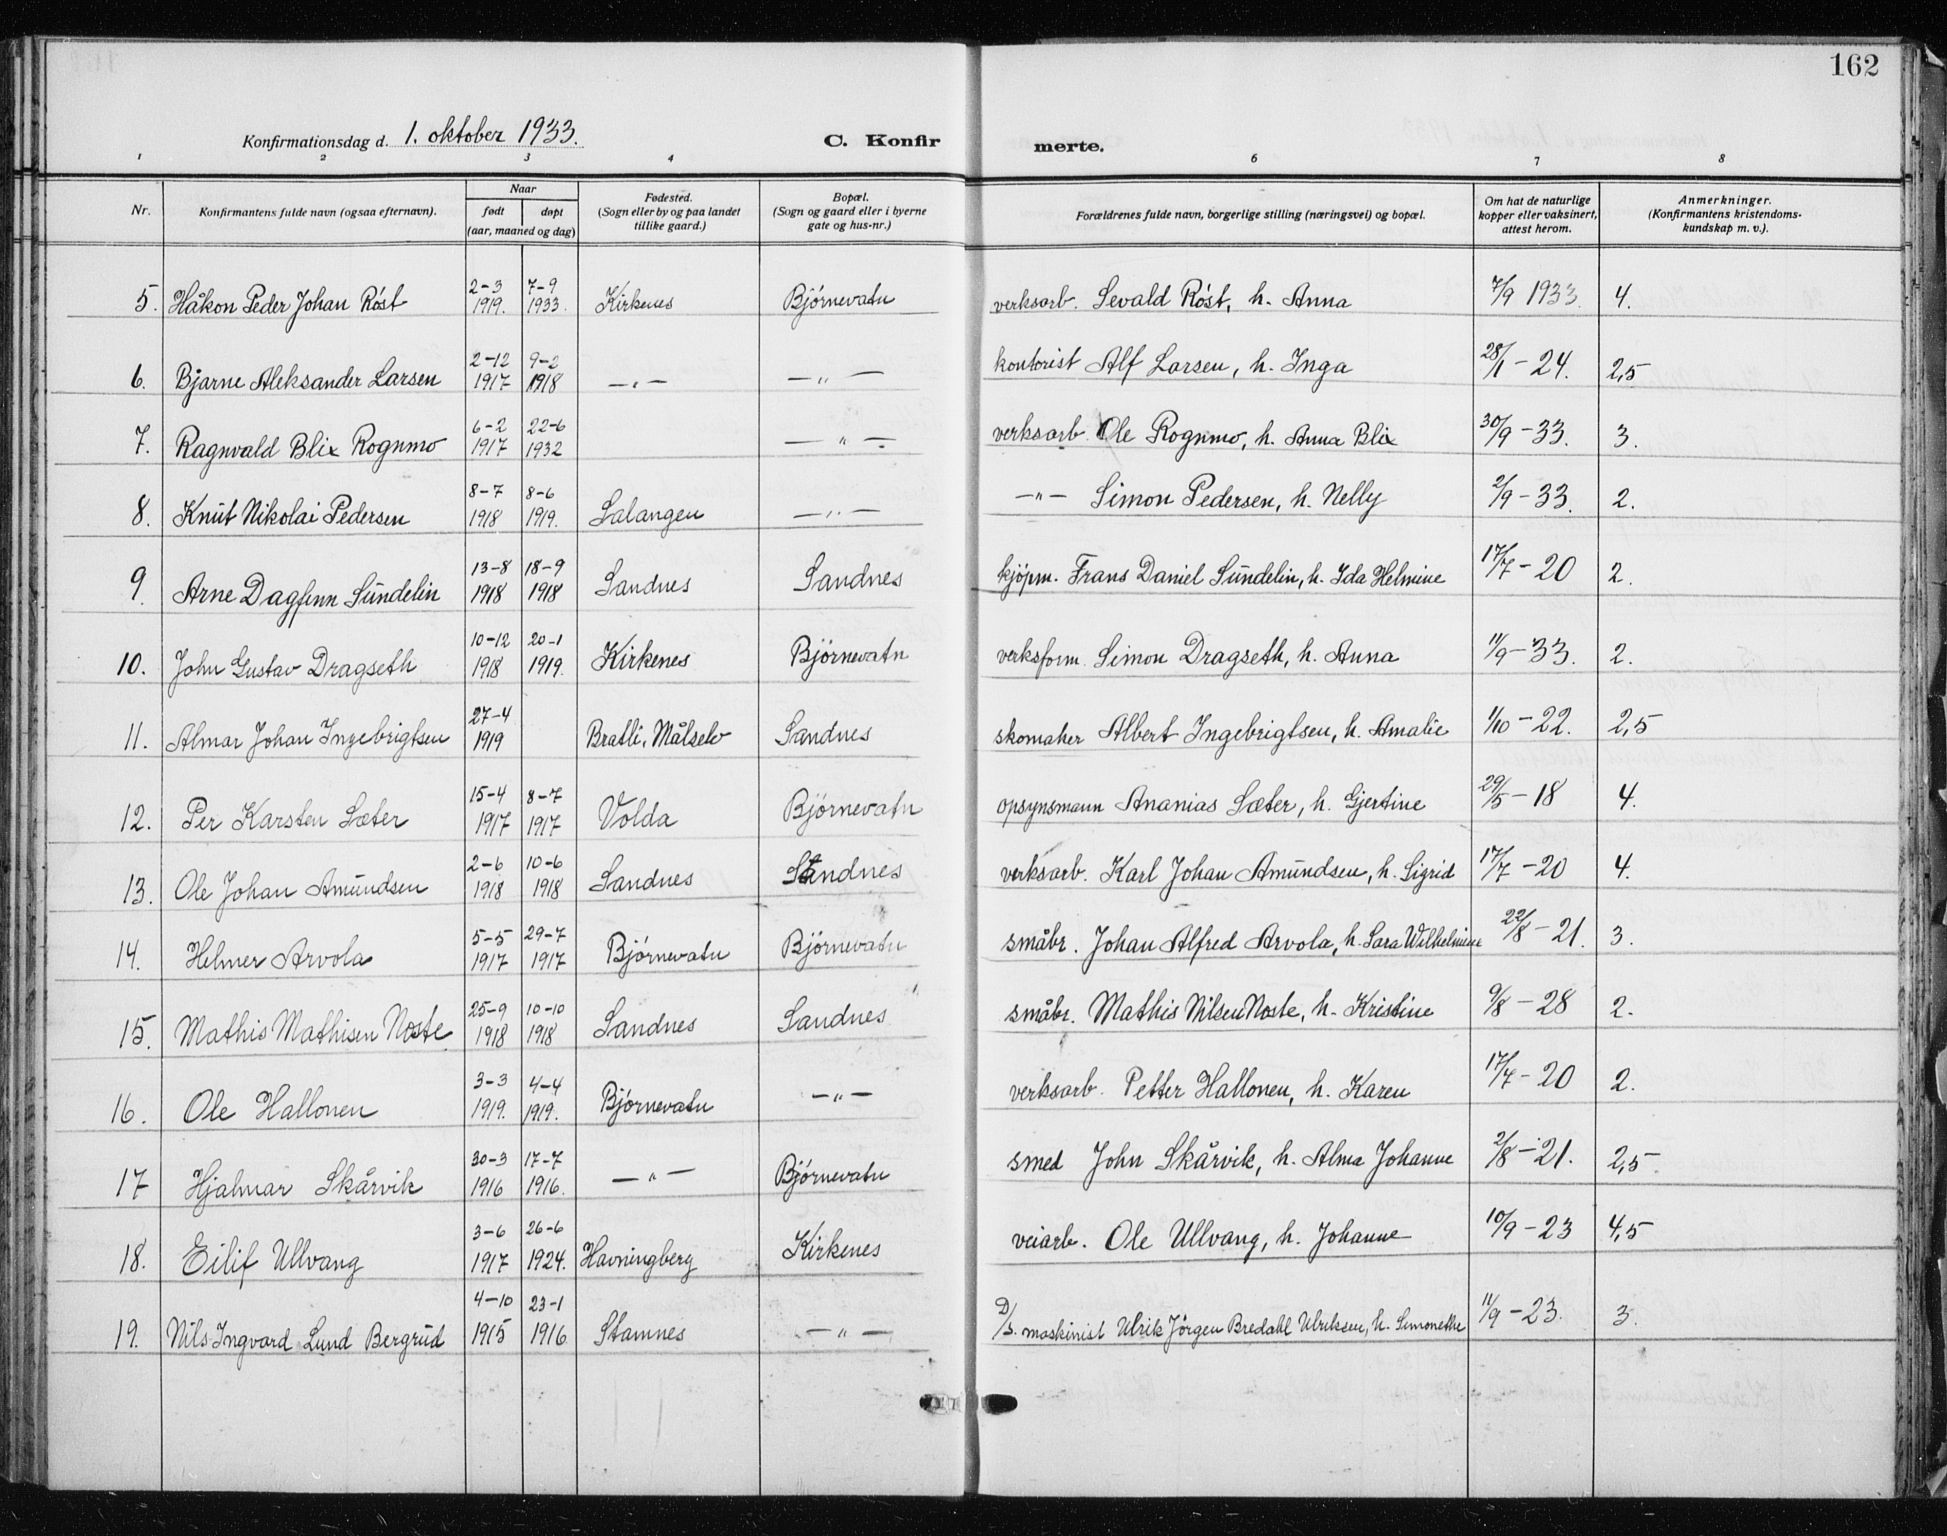 162
Konfirmationsdag d. 1. oktober 1933. C. Konfir merte.
1 2 3 4 6 7 8
Nr. Konfirmantens fulde navn (ogsaa efternavn). Naar født døpt (aar, maaned og dag) Fødested. (Sogn eller by og paa landet tillike gaard.) Bopæl. (Sogn og gaard eller i byerne gate og hus-nr.) Forældrenes fulde navn, borgerlige stilling (næringsvei) og bopæl. Om hat de naturlige kopper eller vaksinert, attest herom. Anmerkninger. (Konfirmantens kristendoms-kundskap m. v.).
5. Håkon Peder Johan Röst 2-3 1919. 7-9 1933. Kirkenes Björnevatn verksarb. Sevald Röst, h. Anna 7/9 1933. 4.
6. Bjarne Aleksander Larsen 2-12 1917 9-2 1918 —"— —"— kontorist Alf Larsen, h. Inga 28/1-24. 2,5
7. Ragnvald Blix Rognmo 6-2 1917 22-6 1932 —"— verksarb. Ole Rognmo, h. Anna Blix 30/9-33. 3.
8. Knut Nikolai Pedersen 8-7 1918 8-6 1919. Salangen —"— —"— Simon Pedersen, h. Nelly 2/9-33. 2.
9. Arne Dagfinn Sundelin 13-8 1918 18-9 1918 Sandnes Sandnes kjöpm. Frans Daniel Sundelin, h. Ida Helmine 17/7-20 2.
10. John Gustav Dragseth 10-12 1918 20-1 1919. Kirkenes Björnevatn verksform. Simon Dragseth, h. Anna 11/9-33. 2.
11. Almar Johan Ingebrigtsen 27-4 1919 Bratli, Målselv Sandnes skomaker Albert Ingebrigtsen, h. Amalie 1/10-22. 2,5
12. Per Karsten Sæter 15-4 1917 8-7 1917 Volda Björnevatn opsynsmann Ananias Sæter, h. Gjertine 29/5-18 4.
13. Ole Johan Amundsen 2-6 1918 10-6 1918 Sandnes Sandnes verksarb. Karl Johan Amundsen, h. Sigrid 17/7-20 4.
14. Helmer Arvola 5-5 1917 29-7 1917 Björnevatn Björnevatn småbr. Johan Alfred Arvola, h. Sara Wilhelmine 22/8-21. 3.
15. Mathis Mathisen Noste 25-9 1918 10-10 1918 Sandnes Sandnes småbr. Mathis Nilsen Noste, h. Kristine 9/8-28 2.
16. Ole Hallonen 3-3 1919. 4-4 1919. Björnevatn —"— verksarb. Petter Hallonen, h. Karen 17/7-20 2.
17 Hjalmar Skårvik 30-3 1916 17-7 1916. —"— Björnevatn smed John Skårvik, h. Alma Johanne 2/8-21. 2,5.
18. Eilif Ullvang 3-6 1917 26-6 1924. Havningberg Kirkenes veiarb. Ole Ullvang, h. Johanne 10/9-23 4,5
19. Nils Ingvard Lund Bergrud 4-10 1915 23-1 1916 Stamnes —"— D/S. maskinist Ulrik Jörgen Bredahl Ulriksen, h. Simonethe 11/9-23. 3.